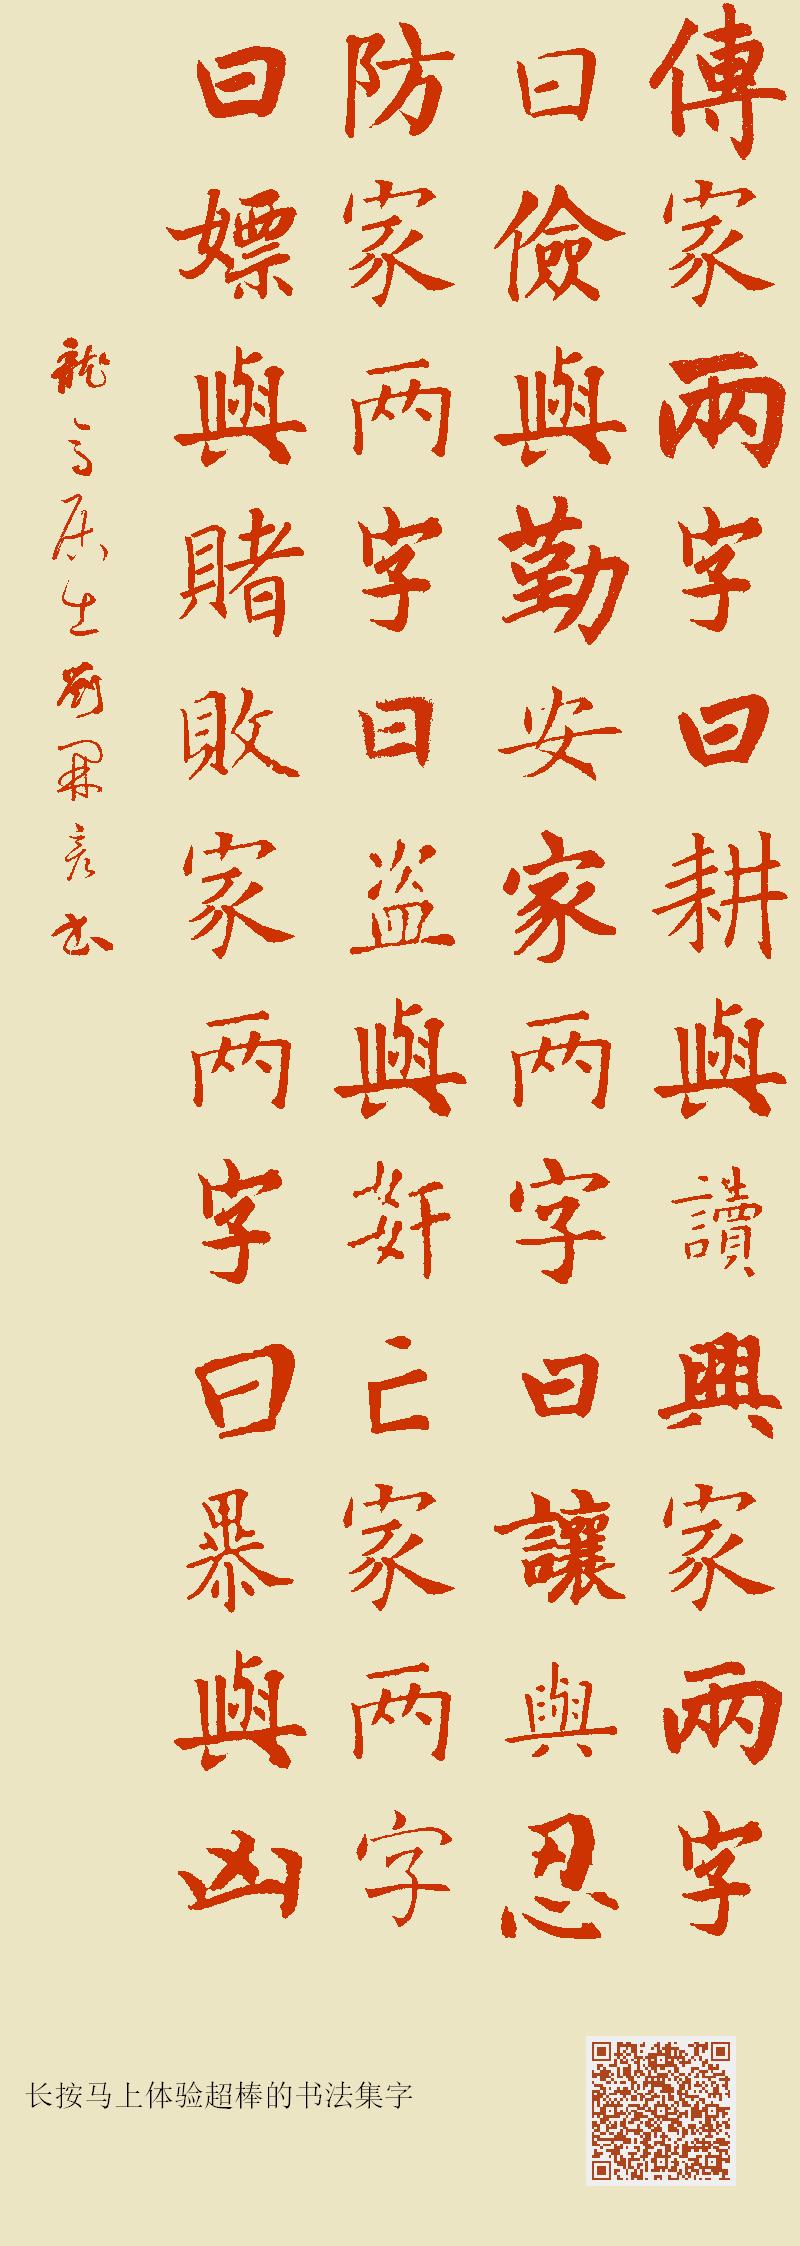 傳家兩字曰耕與讀興家兩字
曰儉與勤安家两字曰讓與忍
防家两字曰盗與姧亡家两字
曰嫖與賭敗家两字曰暴與凶
龍居劉彦书
长按马上体验超棒的书法集字